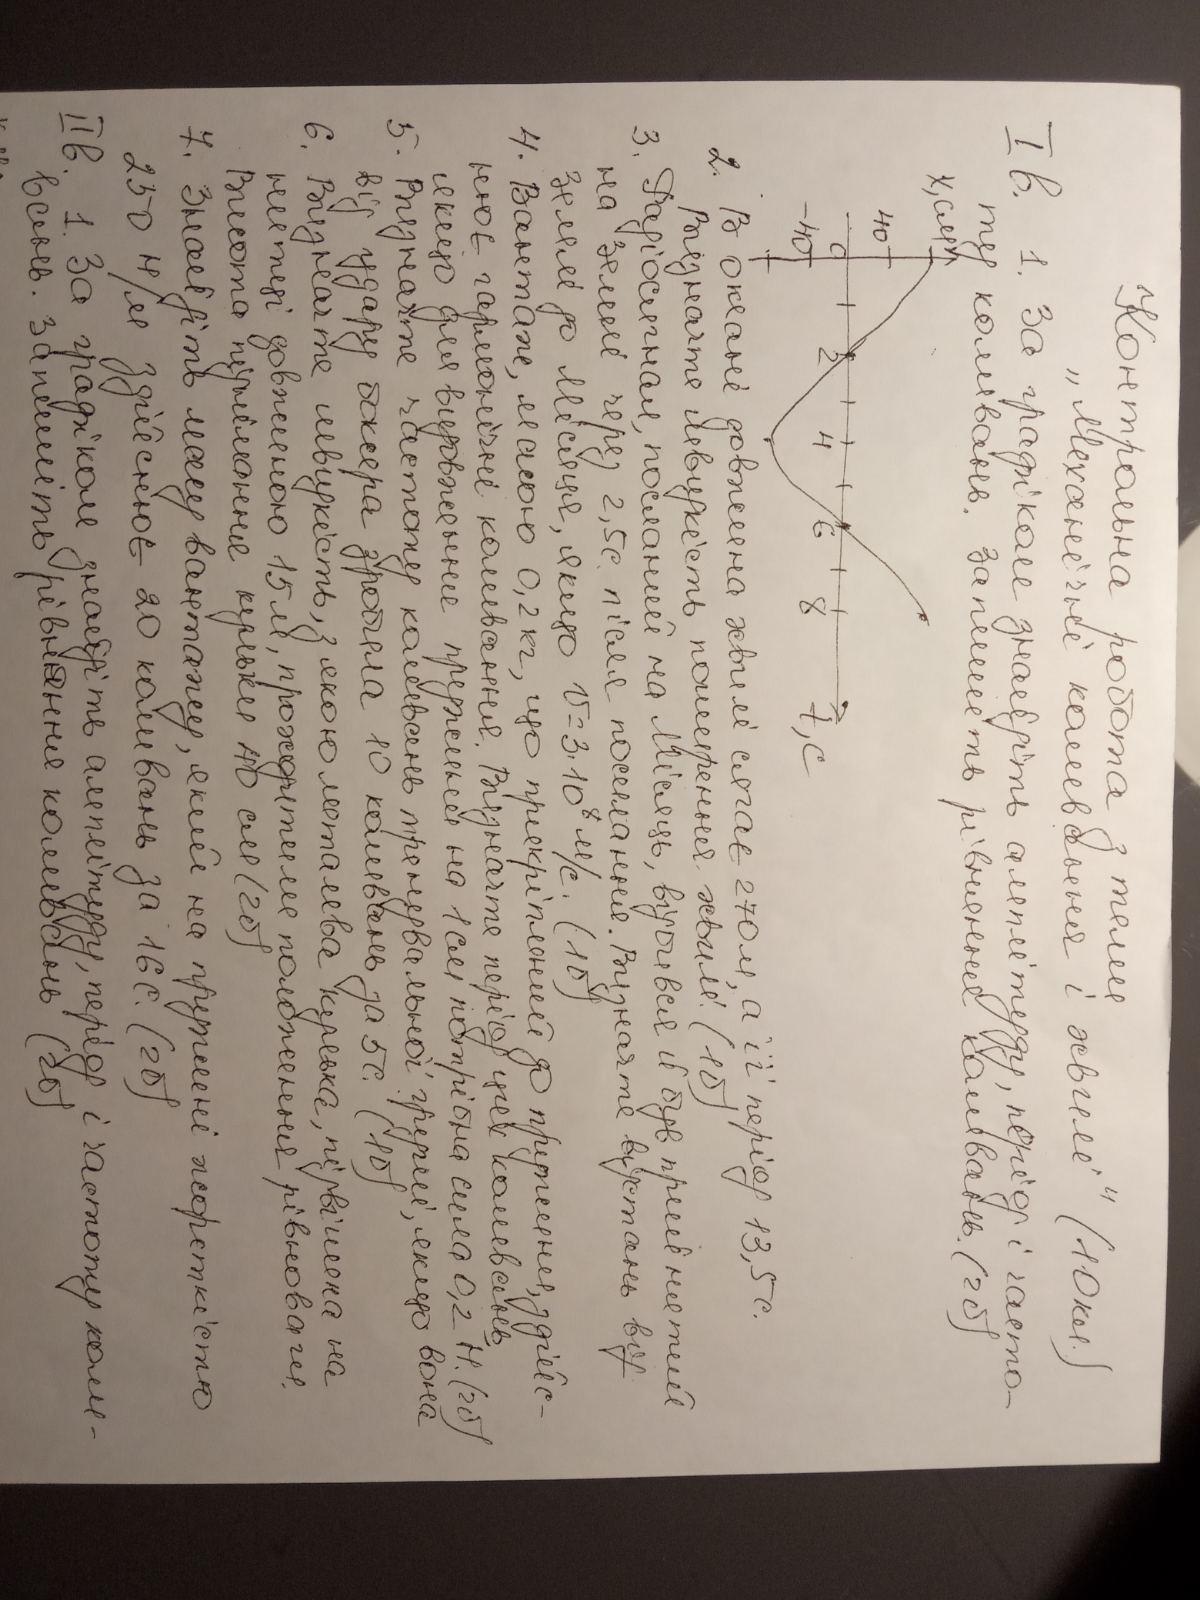 Контрольна робота з теми
„Механічні коливання і хвилі" (10кл.)
Ів. 1. За графіком знайдіть амплітуду, період і часто-
ту коливань. Запишіть рівняння коливань. (2б)
х,см
40
0
-40
2
4
6
8
t, с
2. В океані довжина хвилі сягає 270м, а її період 13,5с.
Визначте швидкість поширення хвилі. (1б)
3. Радіосигнал, посланий на Місяць, відбився й був прийнятий
на Землі через 2,5с. після посилання. Визначте відстань від
Землі до Місяця, якщо V=3·10⁸ м/с. (1б)
4. Вантаж, масою 0,2кг, що прикріплений до пружини, здійс-
нює гармонічні коливання. Визначте період цих коливань
якщо для видовження пружини на 1см потрібна сила 0,2 Н. (2б)
5. Визначте частоту коливань тренувальної груші, якщо вона
від удару боксера зробила 10 коливань за 5с. (1б)
6. Визначте швидкість, з якою металева кулька, підвішена на
нитці довжиною 15м, проходитиме положення рівноваги.
Висота піднімання кульки 40 см (2б)
7. Знайдіть масу вантажу, який на пружині жорсткістю
250 Н/м здійснює 20 коливань за 16с. (2б)
ІІв. 1. За графіком знайдіть амплітуду, період і частоту коли-
вань. Запишіть рівняння коливань (2б)